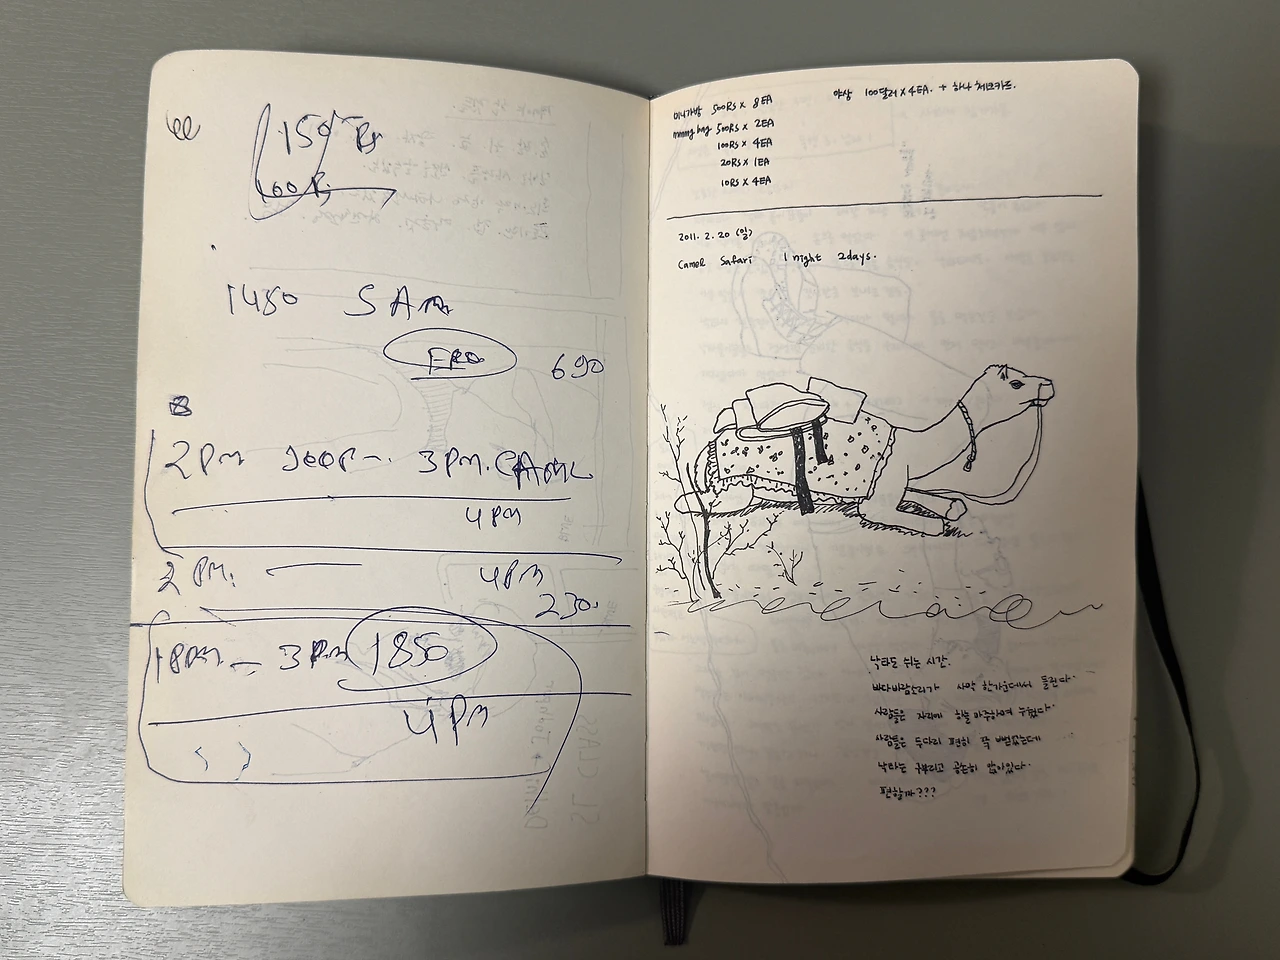 150 Rs
1450 5 Am
690
2 Pm Jeep 3 Pm. CAML
4 PM
2 PM. 4PM
230.
18PM - 3 Pm 1850
4 PM
미니가방 500Rs x 8EA
money bag 500Rs x 2EA
100Rs x 4EA
20Rs x 1EA
10Rs x 4EA
야상 100달러 x 4EA. + 하나 체크카드.
2011. 2. 20 (일)
Camel Safari 1 night 2days.
낙타도 쉬는 시간.
바다바람소리가 사막 한가운데서 들린다.
사람들은 자리에 하늘 마주하여 누웠다.
사람들은 두다리 편히 쫙 뻗었는데
낙타는 구부리고 공손히 앉아있다.
편할까???